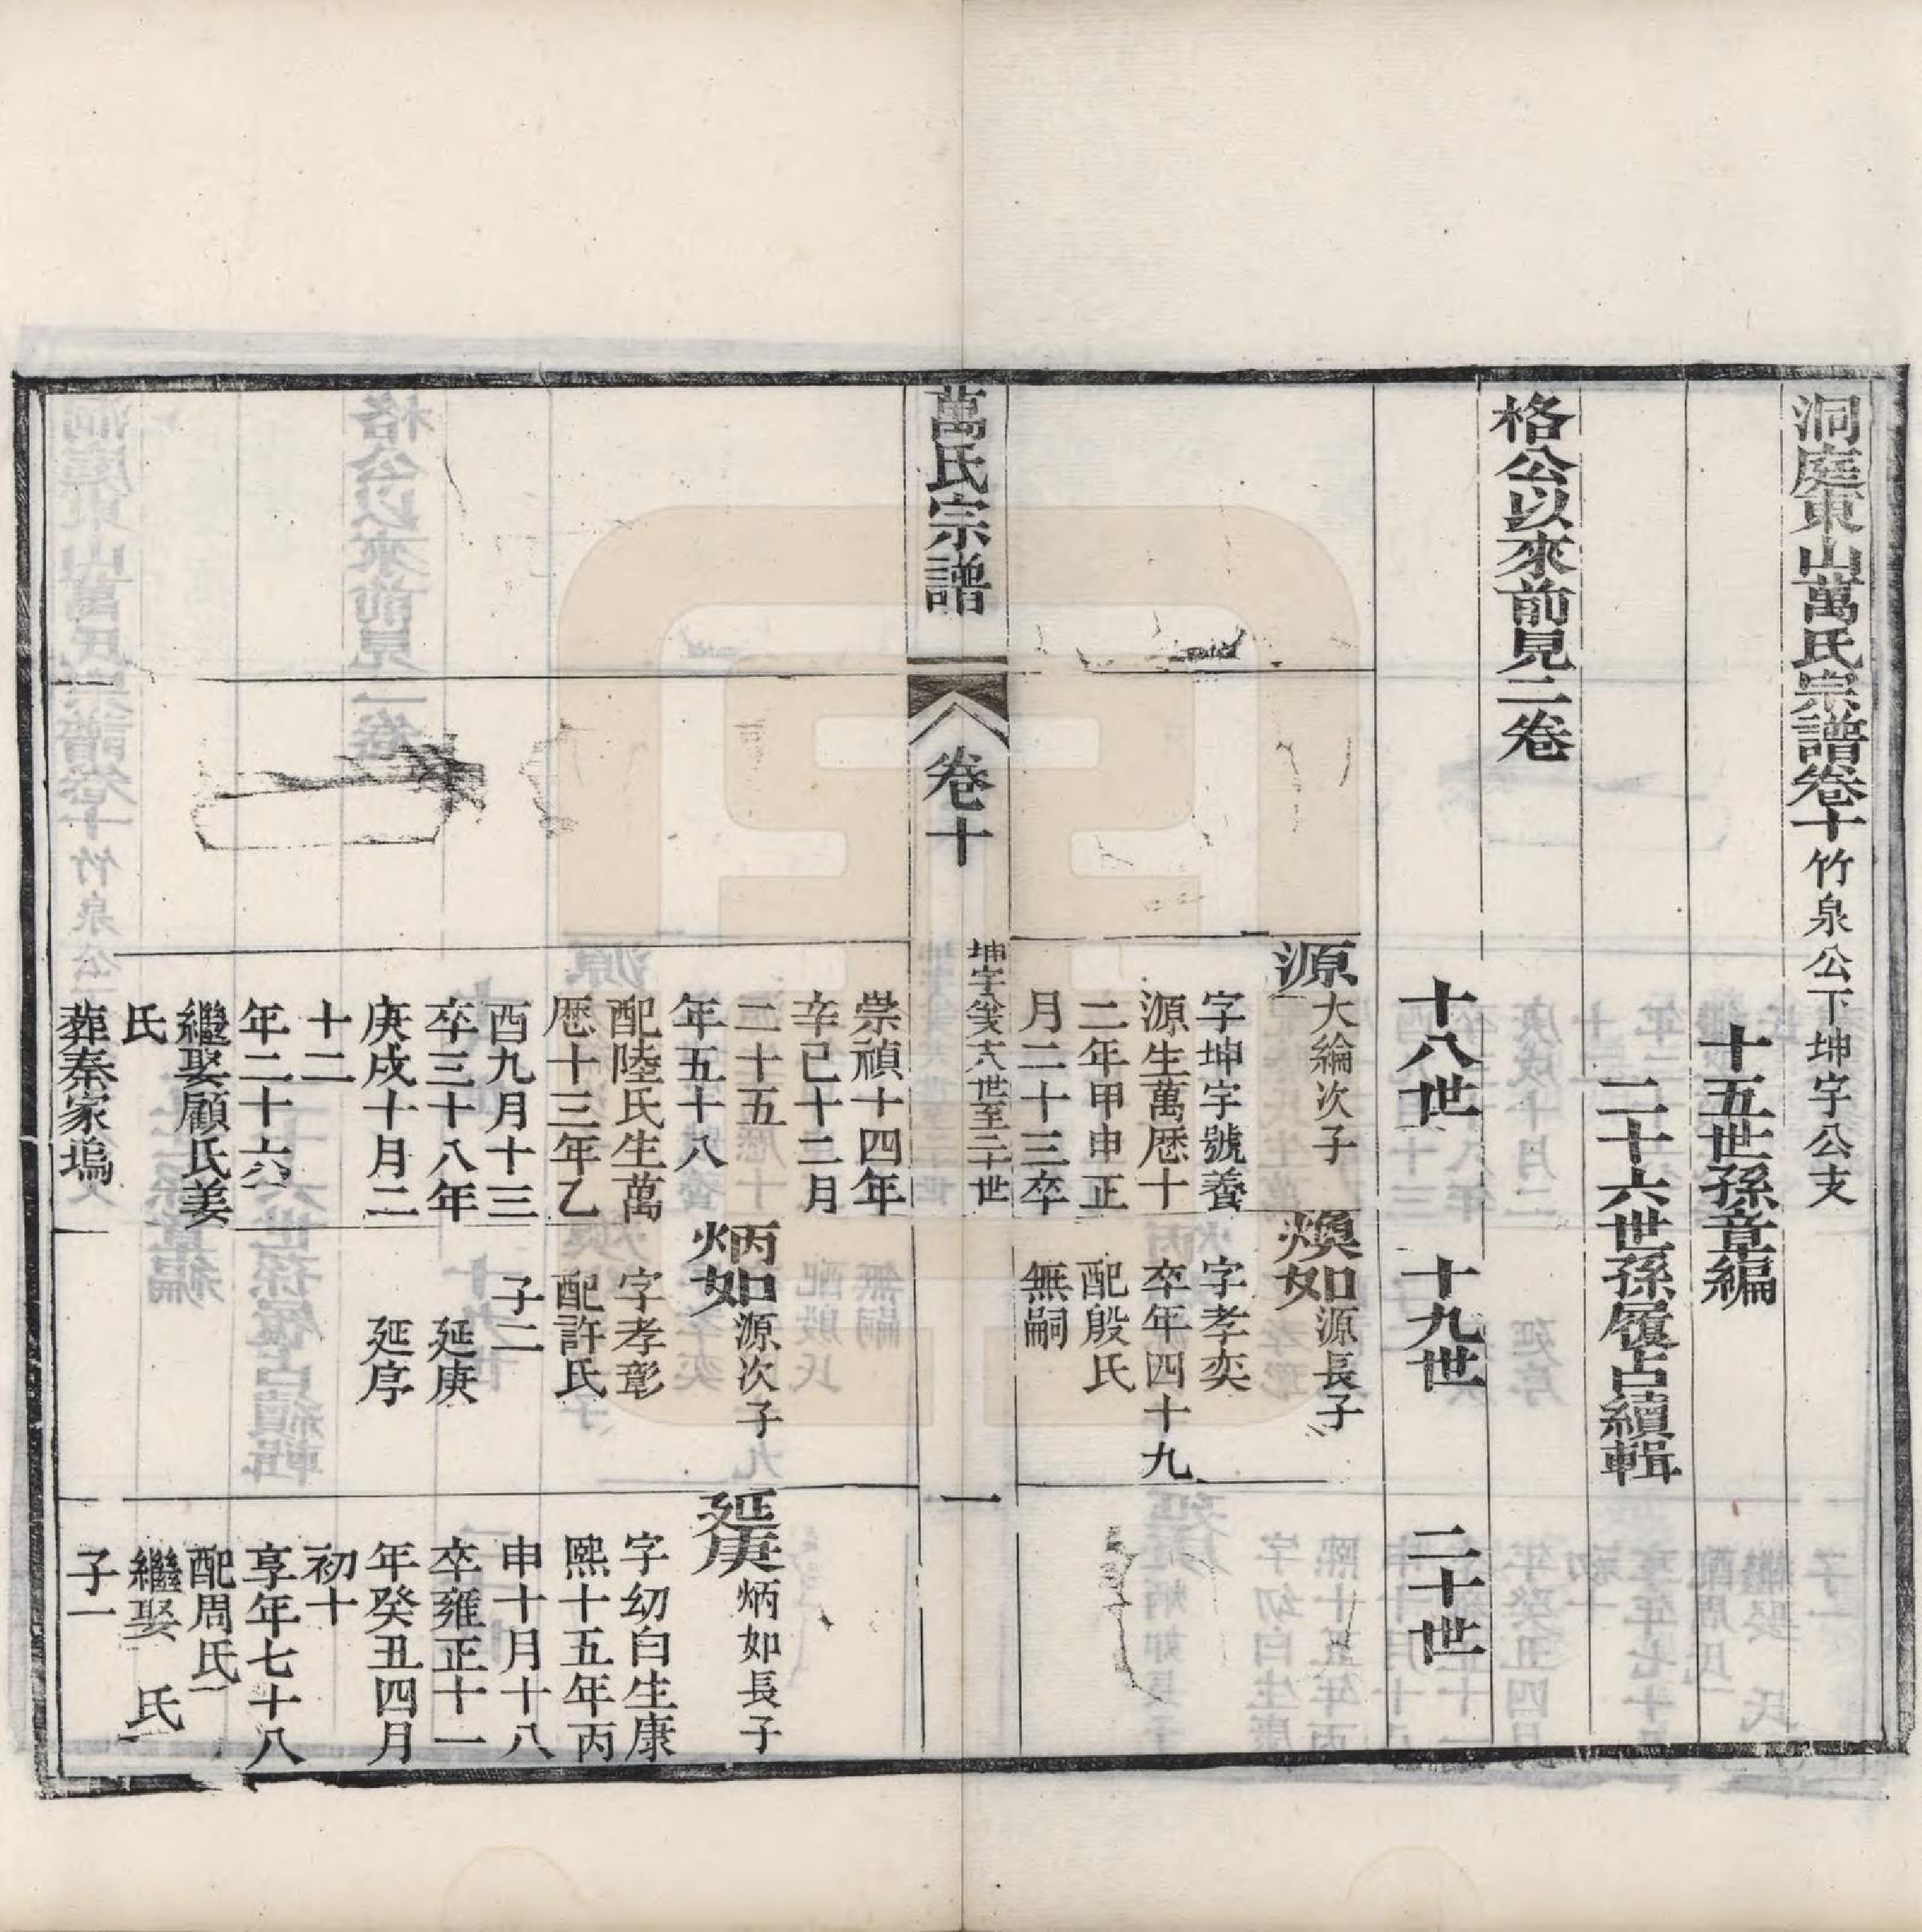 洞庭東山萬氏宗譜卷十竹泉公下坤字公支
十五世孫章編
二十六世孫履占續輯
格公以來前見二卷
十八世
十九世
二十世
源大綸次子
字坤宇號養
源生萬厯十
二年甲申正
月二十三卒
崇禎十四年
辛巳十二月
二十五
年五十八
配陸氏生萬
厯十三年乙
酉九月十三
卒三十八年
庚戌十月二
十二
年二十六
繼娶顧氏姜
氏
葬秦家塢
煥如源長子
字孝奕
卒年四十九
配殷氏
無嗣
炳如源次子
字孝彰
配許氏
子二
延庚
延序
延庚炳如長子
字幼白生康
熙十五年丙
申十月十八
卒雍正十一
年癸丑四月
初十
享年七十八
配周氏
繼娶 氏
子一
萬氏宗譜
卷十
坤字公支十八世至二十世
一